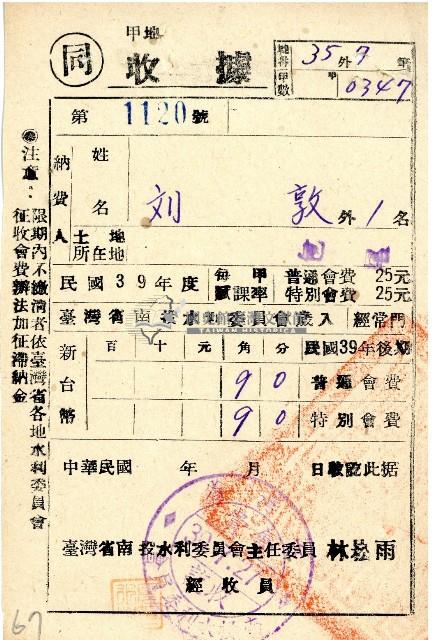 甲地
同 收 據
地得甲數
35 外 7 筆
甲 0347
第 1120 號
納費人
姓名
刘 敦 外 1 名
土地所在地
民國39年度
每甲賦課率
普通會費 25元
特別會費 25元
臺灣省南投水利委員會歲入 經常門
新台幣
百 十 元 角 分
民國39年後期
9 0 普通會費
9 0 特別會費
中華民國 年 月 日收訖此据
臺灣省南投水利委員會主任委員 林松雨
經收員
注意：限期內不繳清者依臺灣省各地水利委員會
征收會費辦法加征滯納金
TAIWAN HISTORICA
67